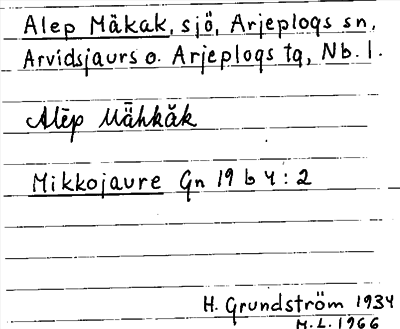 Alep Mäkak, sjö, Arjeplogs sn,
Arvidsjaurs o. Arjeplogs tg, Nb. l.
Alēp Mā̈hkăk
Mikkojaure Gn 19 b 4 : 2
H. Grundström 1934
M.L. 1966